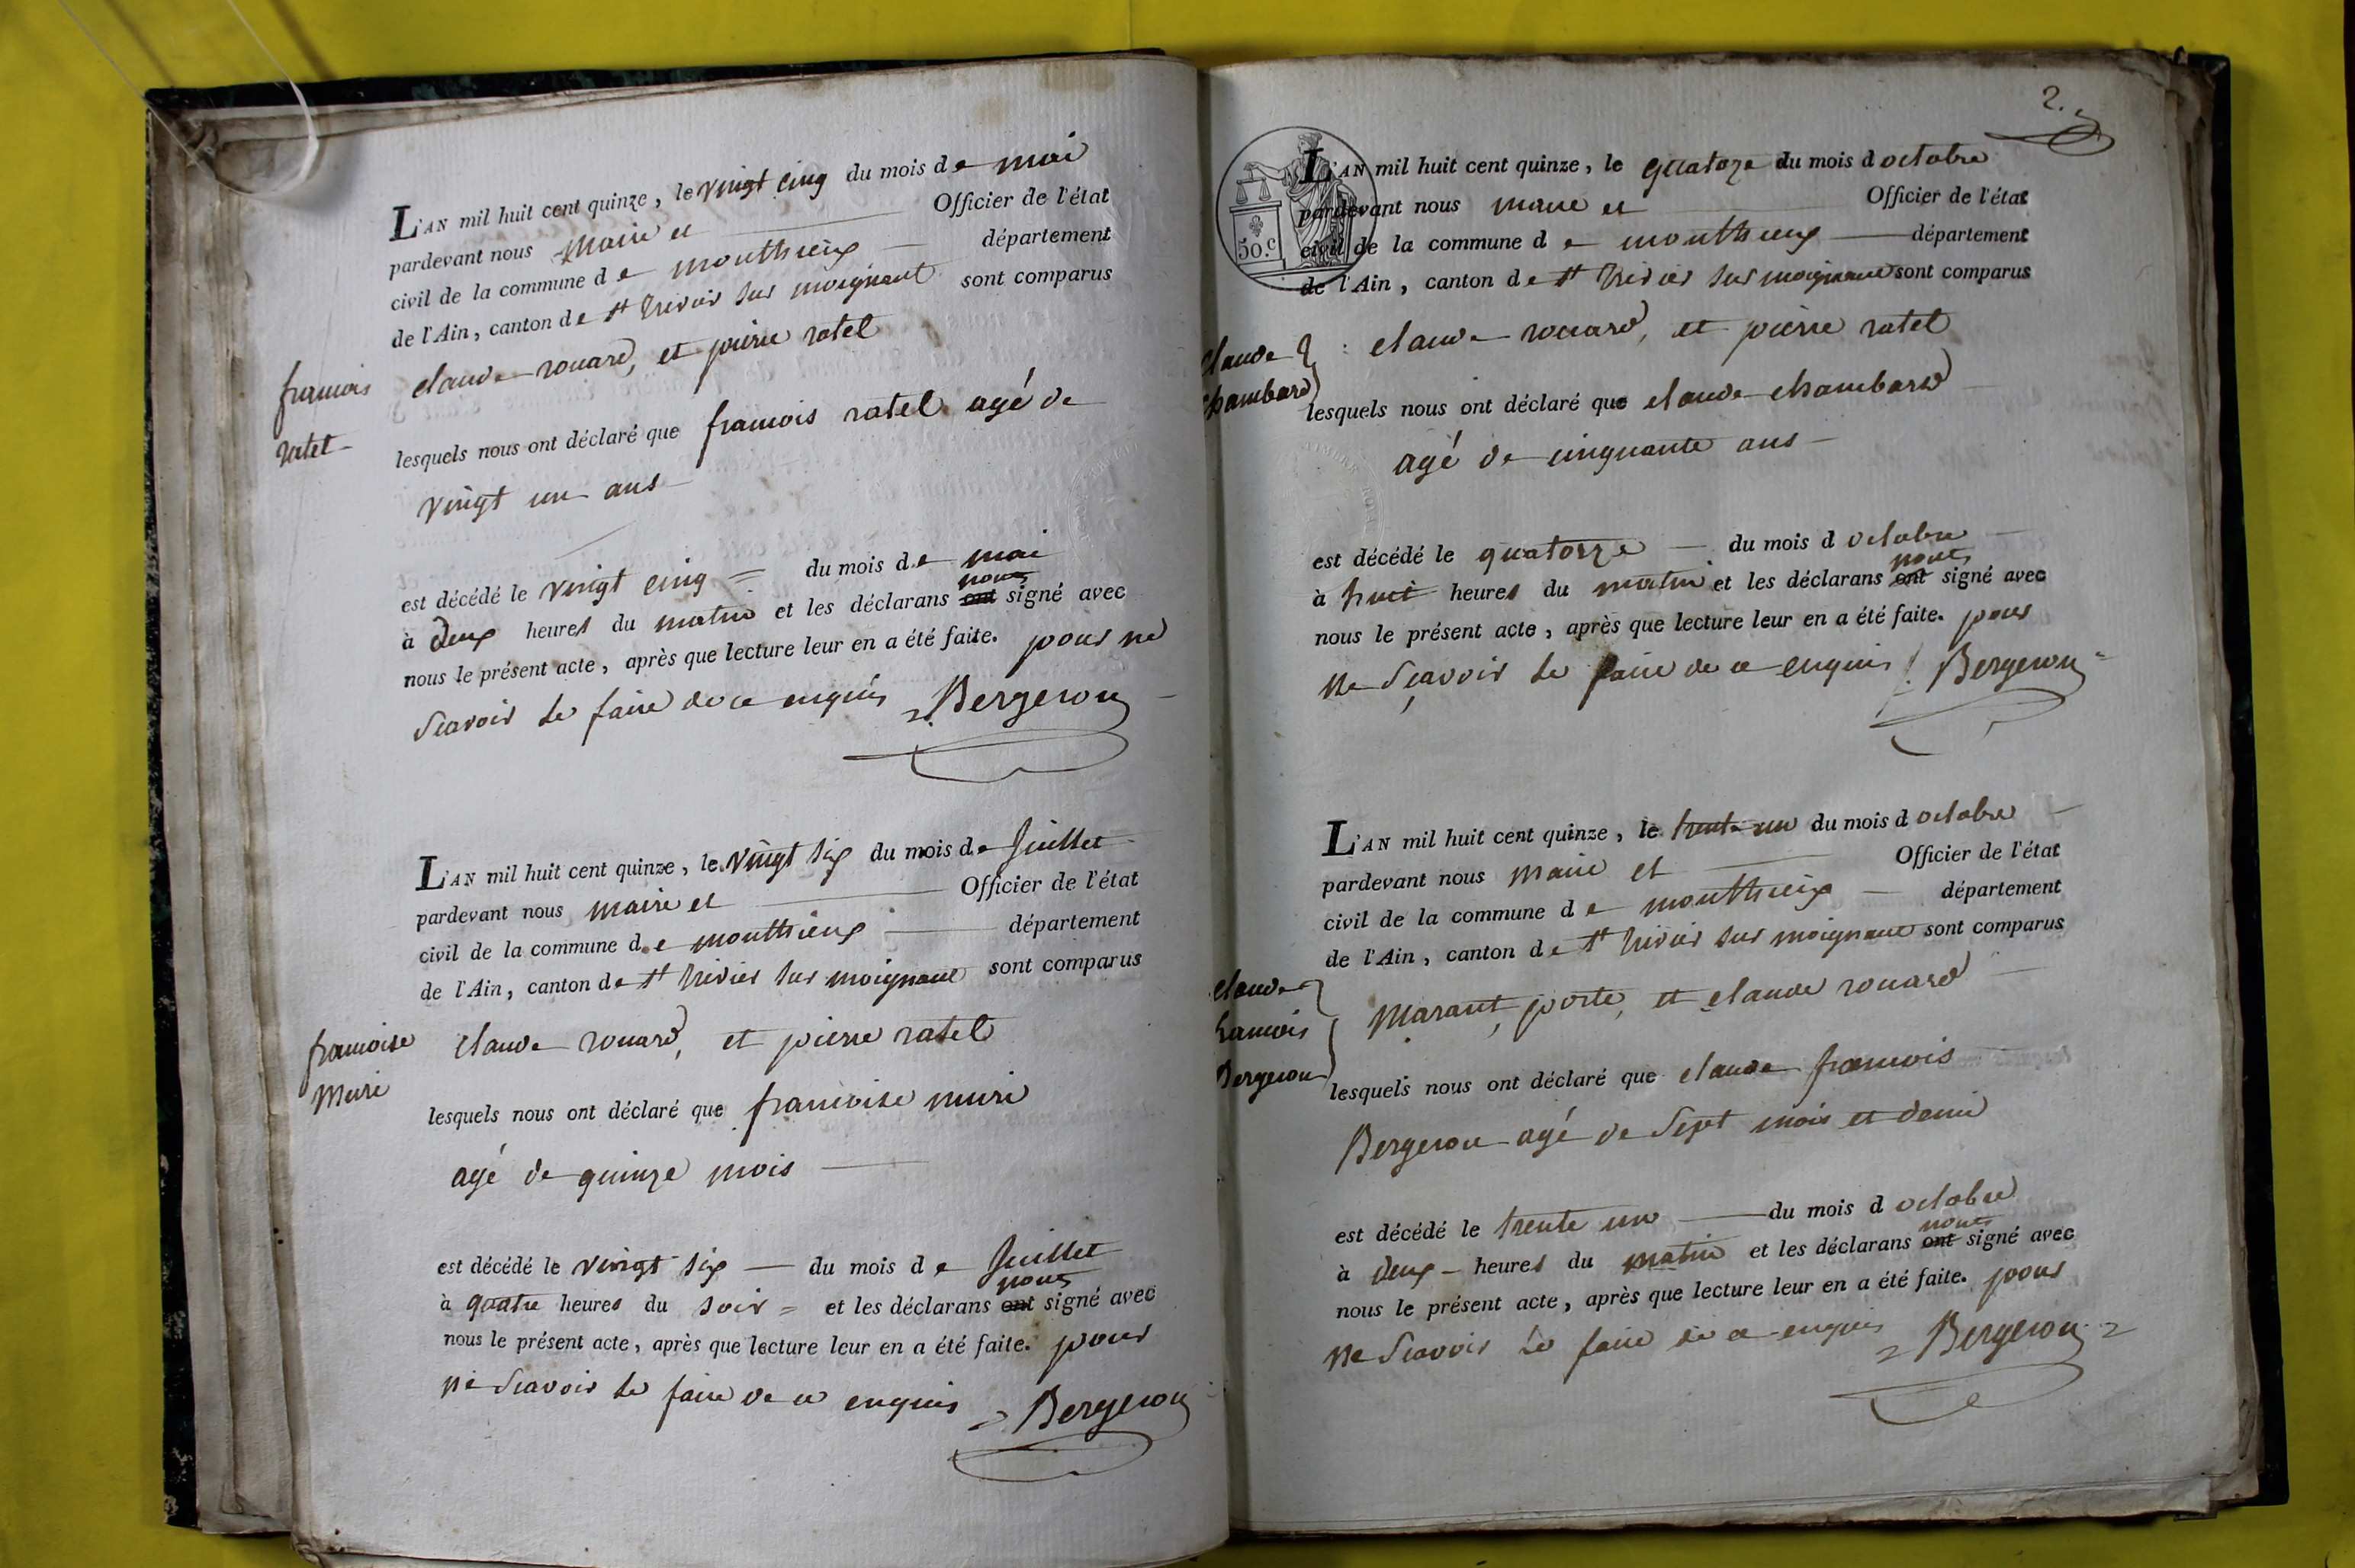 L'AN mil huit cent quinze, le vingt cinq du mois de mai
pardevant nous Maire et Officier de l'état
civil de la commune de monthieux département
de l'Ain, canton de st trivier sur moignant sont comparus
francois
ratet
claude rouard, et pierre ratel
lesquels nous ont déclaré que francois ratel agé de
vingt un ans
est décédé le vingt cinq du mois de mai
nous
à deux heures du matin et les déclarans ont signé avec
nous le présent acte, après que lecture leur en a été faite. pour ne
scavoir le faire de ce enquis Bergeron
L'AN mil huit cent quinze, le vingt six du mois de Juillet
pardevant nous maire et Officier de l'état
civil de la commune de monthieux département
de l'Ain, canton de st trivier sur moignant sont comparus
francoise
Muri
claude rouard, et pierre ratel
lesquels nous ont déclaré que francoise muri
agé de quinze mois
est décédé le vingt six du mois de Juillet
nous
à quatre heures du soir et les déclarans ont signé avec
nous le présent acte, après que lecture leur en a été faite. pour
ne scavoir le faire de ce enquis Bergeron
2.
L'AN mil huit cent quinze, le quatoze du mois d octobre
pardevant nous maire et Officier de l'état
50.c
civil de la commune de monthieux département
de l'Ain, canton de st trivier sur moignant sont comparus
claude
chambard
claude rouard, et pierre ratel
lesquels nous ont déclaré que claude chambard
agé de cinquante ans
est décédé le quatorze du mois d octobre
nous
à huit heures du matin et les déclarans ont signé avec
nous le présent acte, après que lecture leur en a été faite. pour
ne sçavoir le faire de ce enquis Bergeron
L'AN mil huit cent quinze, le trente un du mois d octobre
pardevant nous maire et Officier de l'état
civil de la commune de monthieux département
de l'Ain, canton de st trivier sur moignant sont comparus
claude
francois
Bergeron
Marant, porte, et claude rouard
lesquels nous ont déclaré que claude francois
Bergeron agé de sept mois et demi
est décédé le trente un du mois d octobre
nous
à deux heures du matin et les déclarans ont signé avec
nous le présent acte, après que lecture leur en a été faite. pour
ne scavoir le faire de ce enquis Bergeron